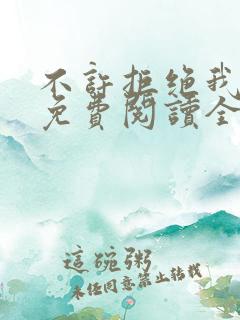 不許拒絕我
免費閱讀全
這碗粥
未經同意禁止轉載